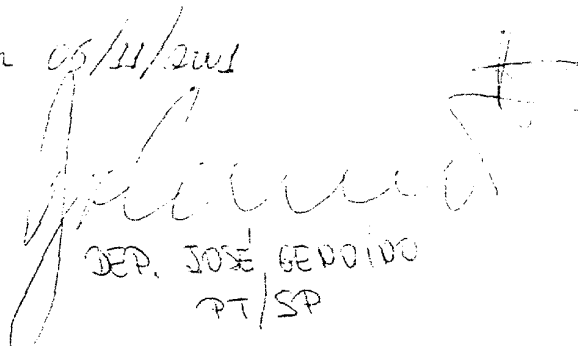 06/11/2001
DEP. JOSÉ GENOÍNO
PT/SP